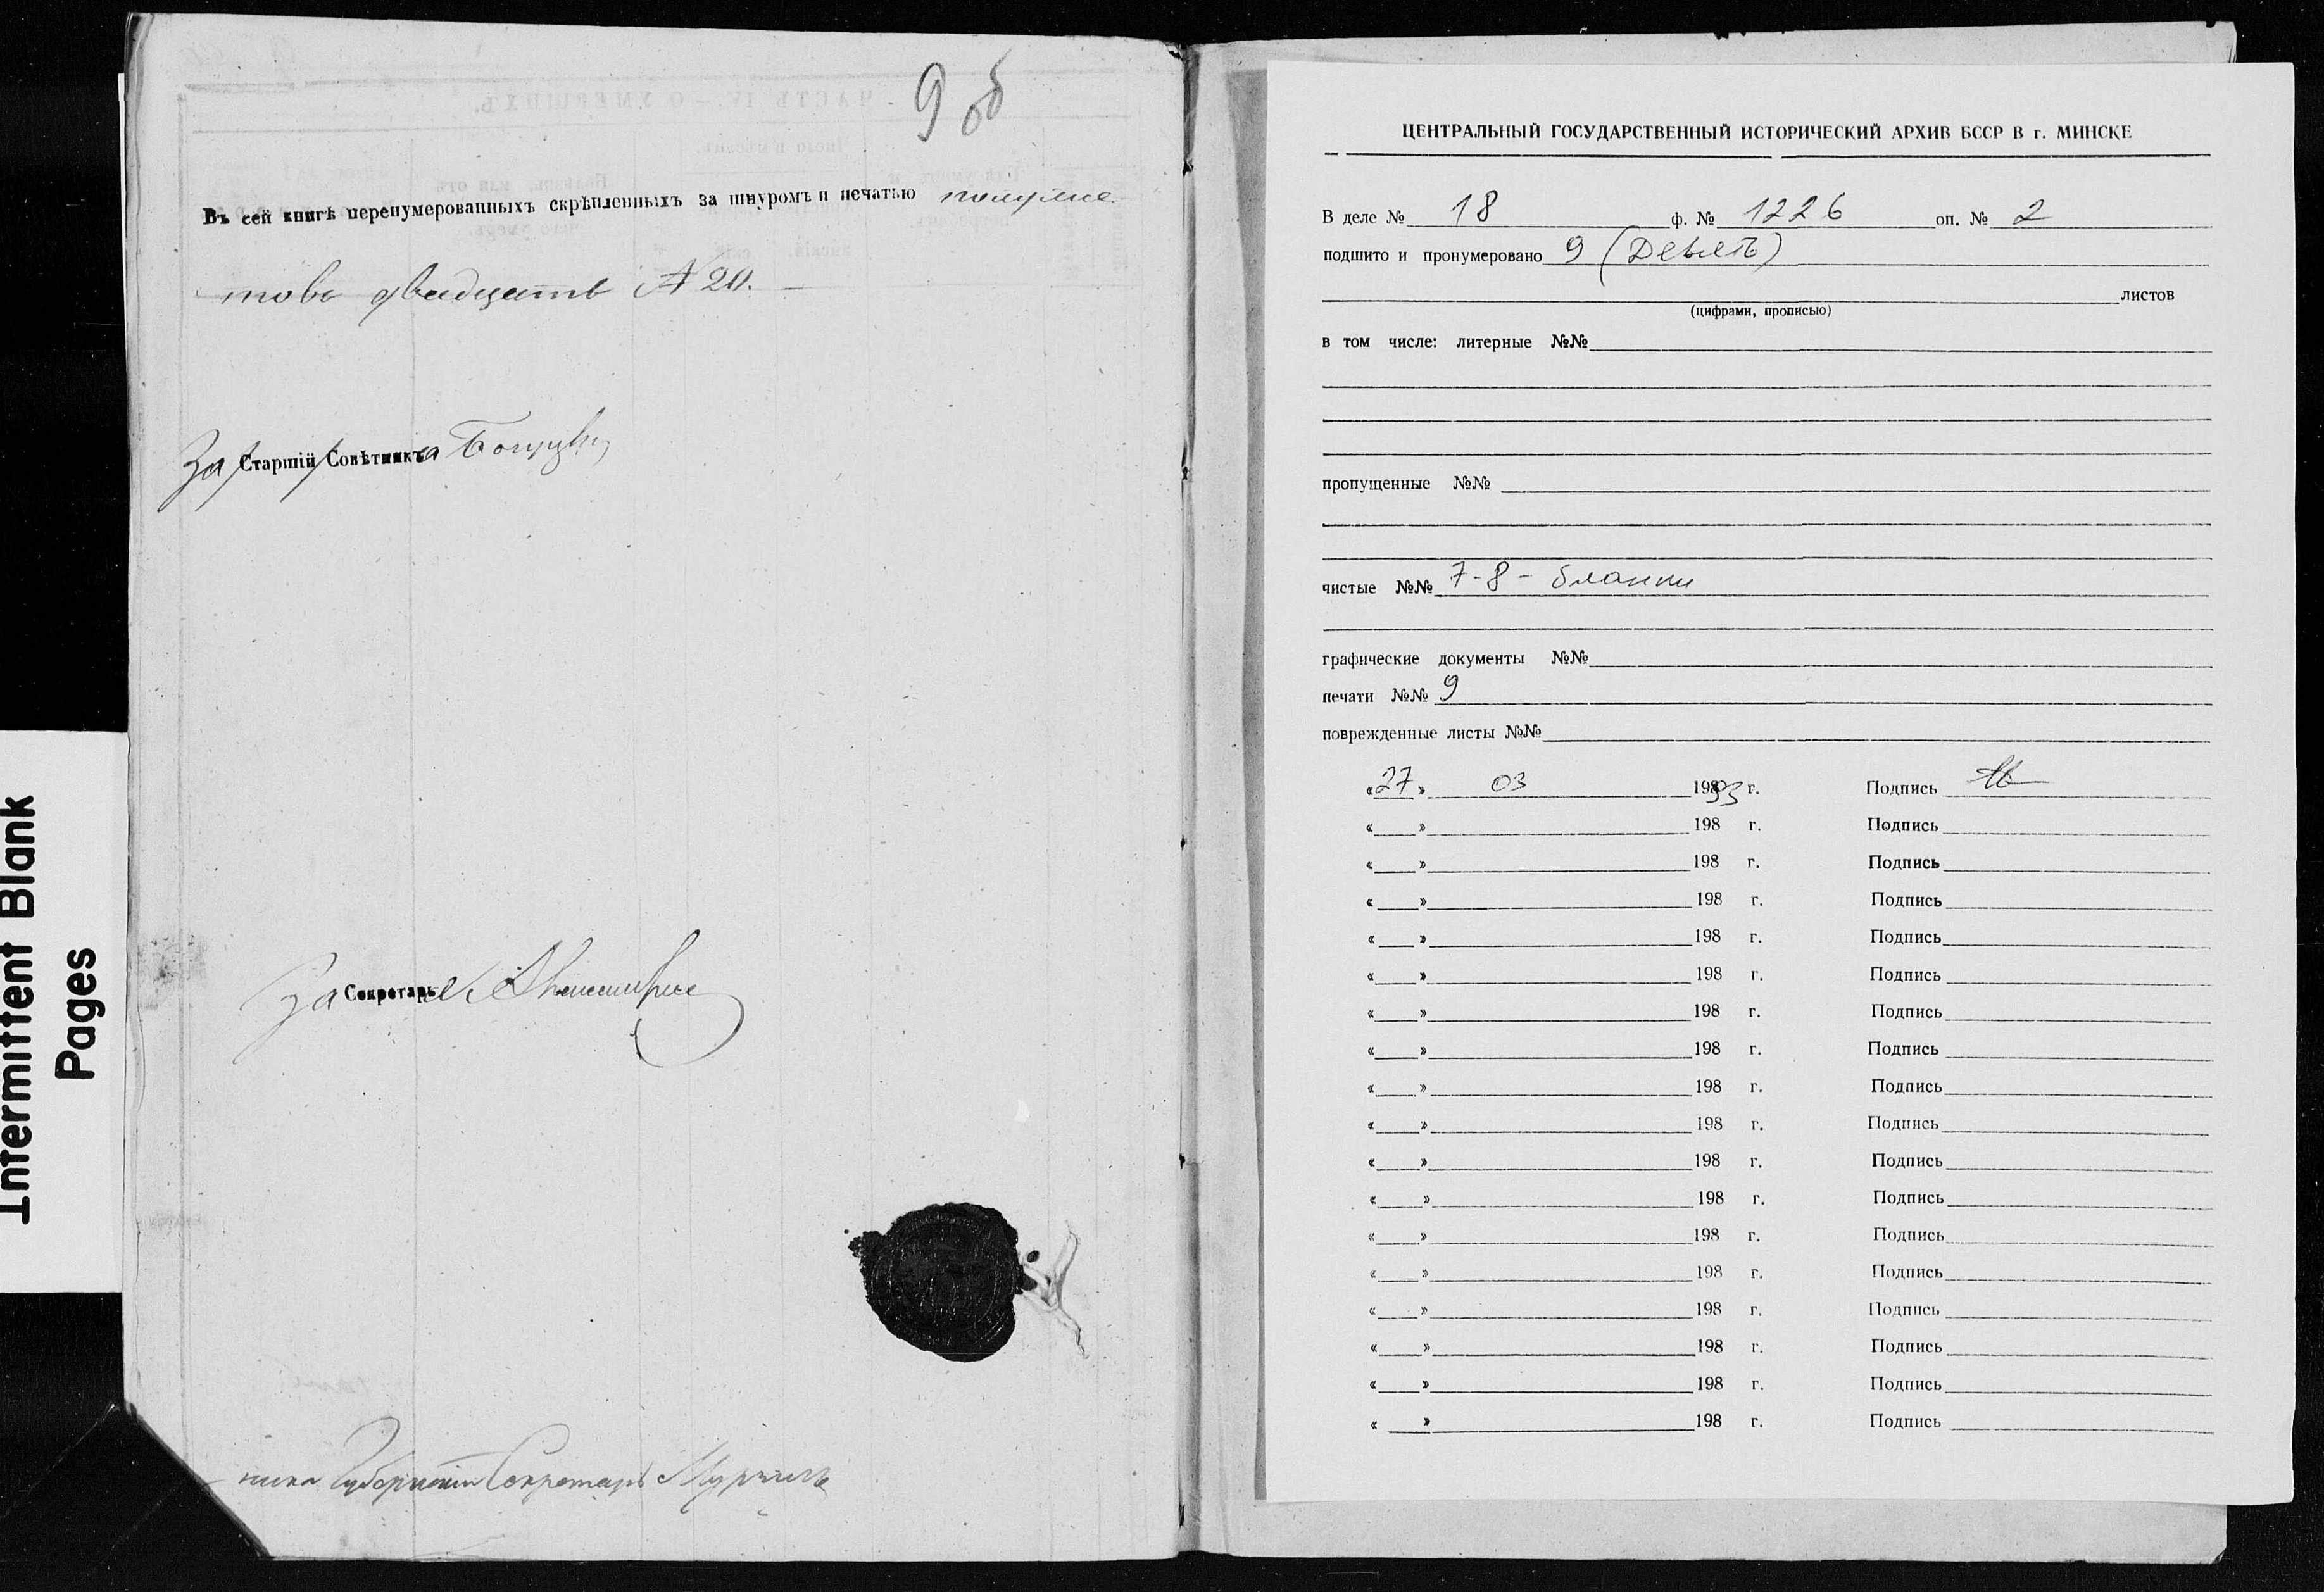 Intermittent Blank
Pages
9 об
Въ сей книгѣ перенумерованныхъ скрѣпленныхъ за шнуромъ и печатью полулис
товъ двадцать № 20.
За Старшій Совѣтника
За Секретаря
ника Губернскій Секретарь
ЦЕНТРАЛЬНЫЙ ГОСУДАРСТВЕННЫЙ ИСТОРИЧЕСКИЙ АРХИВ БССР В г. МИНСКЕ
В деле № 18 ф. № 1226 оп. № 2
подшито и пронумеровано 9 (Девять)
листов
(цифрами, прописью)
в том числе: литерные №№
пропущенные №№
чистые №№ 7-8 - бланки
графические документы №№
печати №№ 9
поврежденные листы №№
«27» 03 1993 г. Подпись
« » 198 г. Подпись
« » 198 г. Подпись
« » 198 г. Подпись
« » 198 г. Подпись
« » 198 г. Подпись
« » 198 г. Подпись
« » 198 г. Подпись
« » 198 г. Подпись
« » 198 г. Подпись
« » 198 г. Подпись
« » 198 г. Подпись
« » 198 г. Подпись
« » 198 г. Подпись
« » 198 г. Подпись
« » 198 г. Подпись
« » 198 г. Подпись
« » 198 г. Подпись